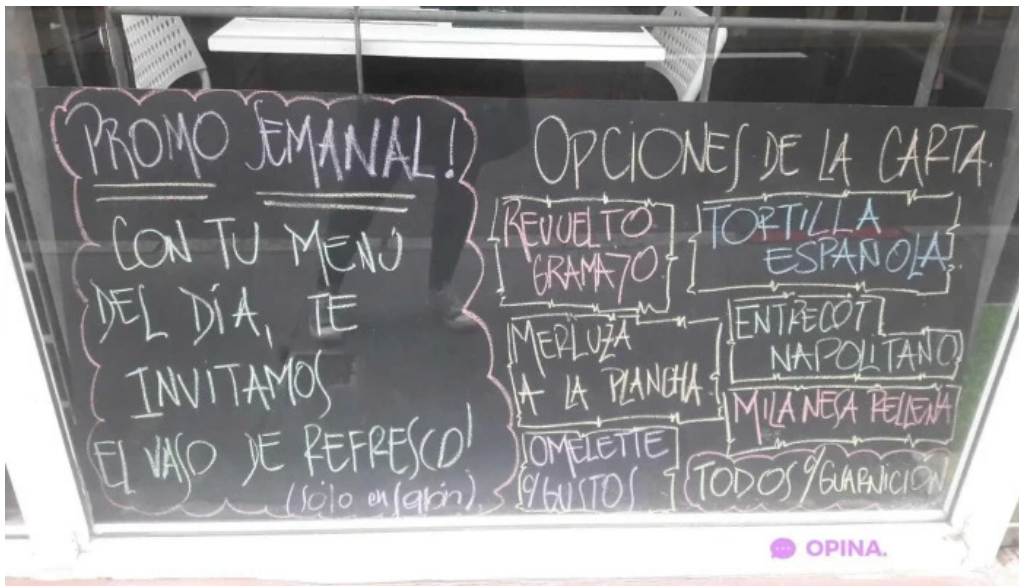 PROMO SEMANAL!
CON TU MENÚ
DEL DÍA, TE
INVITAMOS
EL VASO DE REFRESCO!
(sólo en salón).
OPCIONES DE LA CARTA.
REVUELTO
GRAMAJO.
TORTILLA
ESPAÑOLA.
MERLUZA
A LA PLANCHA.
ENTRECOT
NAPOLITANO
MILANESA RELLENA
OMELETTE
c/GUSTOS
TODOS c/GUARNICIÓN
OPINA.